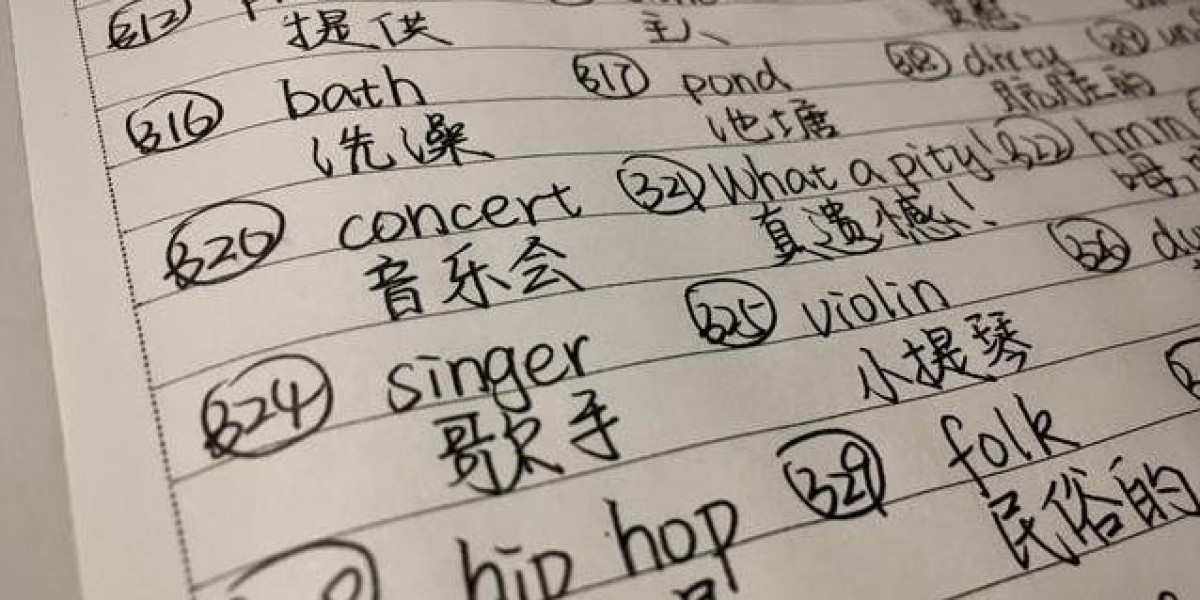 312
提供
316 bath 317 pond 318 dirty 319
洗澡 池塘 肮脏的
320 concert 321 What a pity! 322 hmm
音乐会 真遗憾!
324 singer 325 violin 326
歌手 小提琴
hip hop 329 folk
民俗的